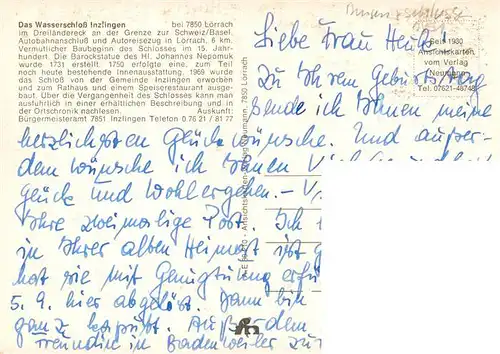 Das Wasserschloß Inzlingen bei 7850 Lörrach
im Dreiländereck an der Grenze zur Schweiz/Basel.
Autobahnanschluß und Autoreisezug in Lörrach, 6 km.
Vermutlicher Baubeginn des Schlosses im 15. Jahr-
hundert. Die Barockstatue des Hl. Johannes Nepomuk
wurde 1731 erstellt. 1750 erfolgte eine zum Teil
noch heute bestehende Innenausstattung. 1969 wurde
das Schloß von der Gemeinde Inzlingen erworben
und zum Rathaus und einem Speiserestaurant ausge-
baut. Über die Vergangenheit des Schlosses kann man
ausführlich in einer erhältlichen Beschreibung und in
der Ortschronik nachlesen. Auskunft:
Bürgermeisteramt 7851 Inzlingen Telefon 0 76 21 / 81 77
1980
Ansichtskarten
vom Verlag
Neumann
Tel. 07621-48748
Liebe Frau
Zu Ihrem Geburtstag
sende ich Ihnen meine
herzlichsten Glückwünsche. Und außer-
dem wünsche ich Ihnen
Glück und Wohlergehen. –
Ihre zweimalige Post. Ich
in Ihrer alten Heimat ist
hat sie mit Genugtuung
5. 9. hier abgelöst. Dann bin
ganz kaputt. Außerdem
Freundin in Badenweiler zu
Ansichtskarten-Verlag Neumann, 7850 Lörrach